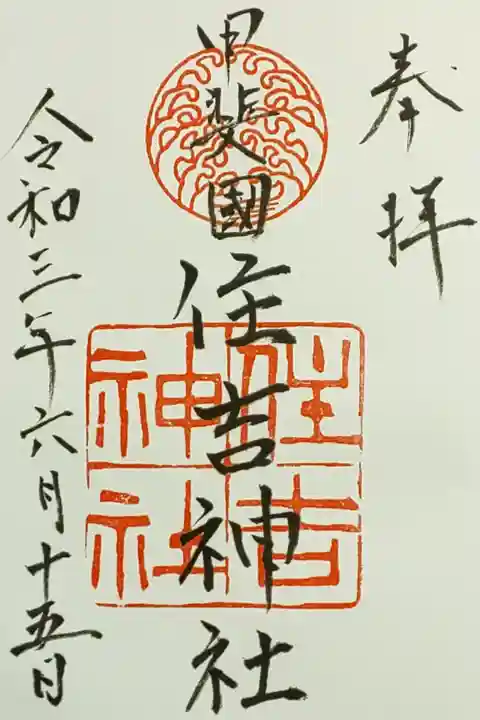 奉拝
甲斐國
住吉神社
住吉
神社
令和三年六月十五日